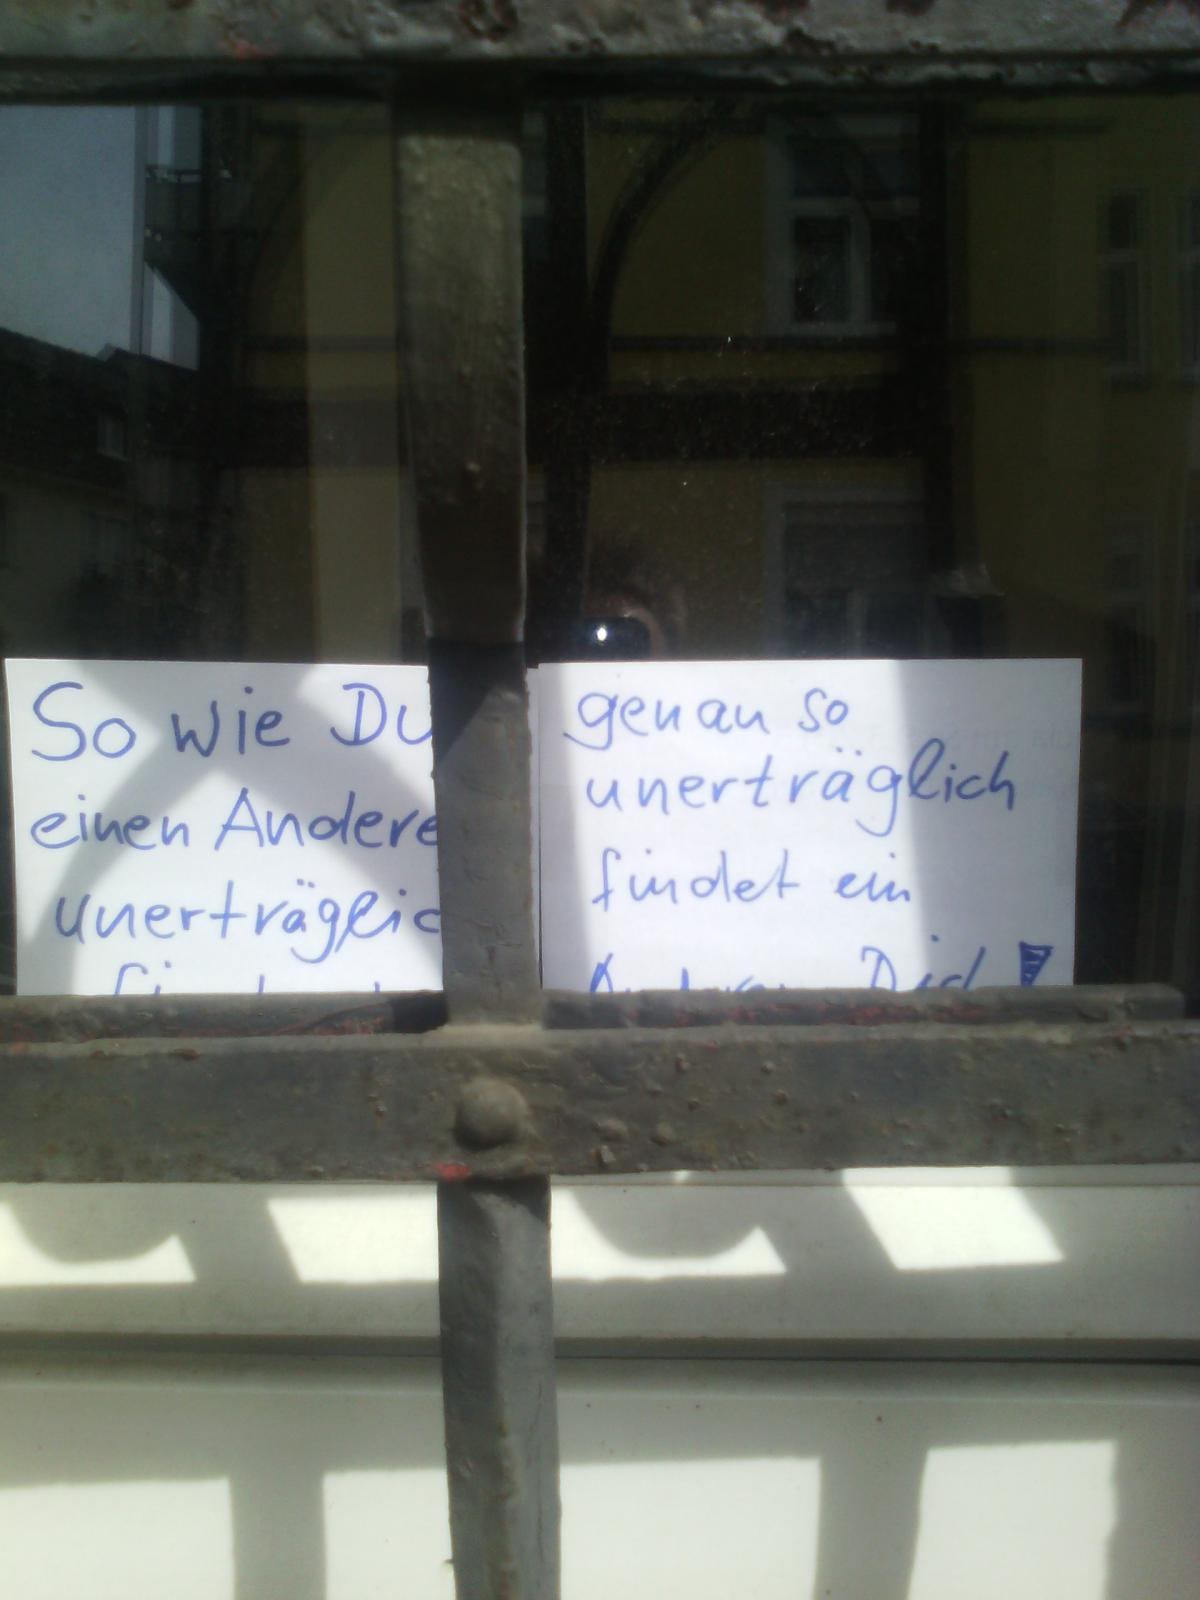 So wie Du
einen Andere
unerträglic
findet
genau so
unerträglich
findet ein
Anderer Dich!